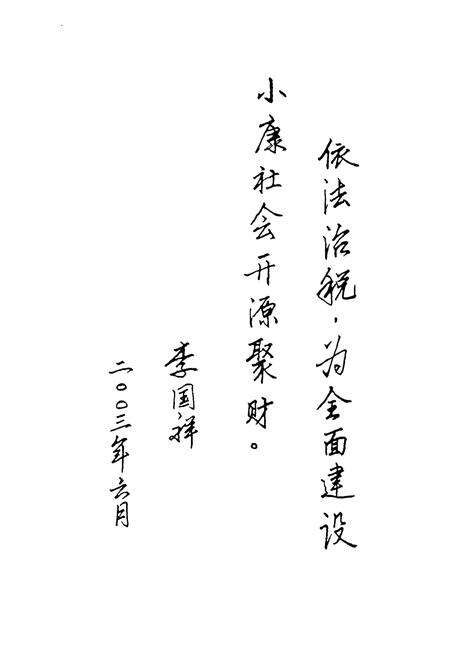 依法治税，为全面建设
小康社会开源聚财。
李国祥
二〇〇三年六月